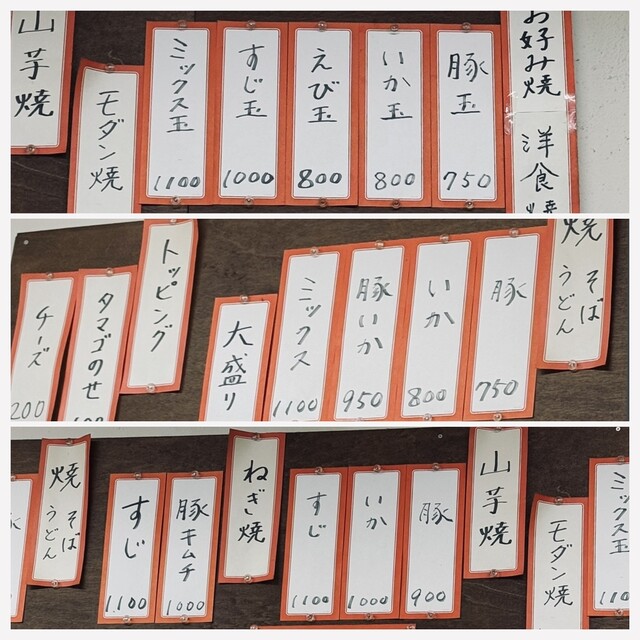 お好み焼
洋食焼
豚玉
750
いか玉
800
えび玉
800
すじ玉
1000
ミックス玉
1100
モダン焼
山芋焼
焼そば
うどん
豚
750
いか
800
豚いか
950
ミックス
1100
大盛り
トッピング
タマゴのせ
チーズ
200
ミックス玉
モダン焼
山芋焼
豚
900
いか
1000
すじ
1100
ねぎ焼
豚キムチ
1000
すじ
1,100
焼そば
うどん